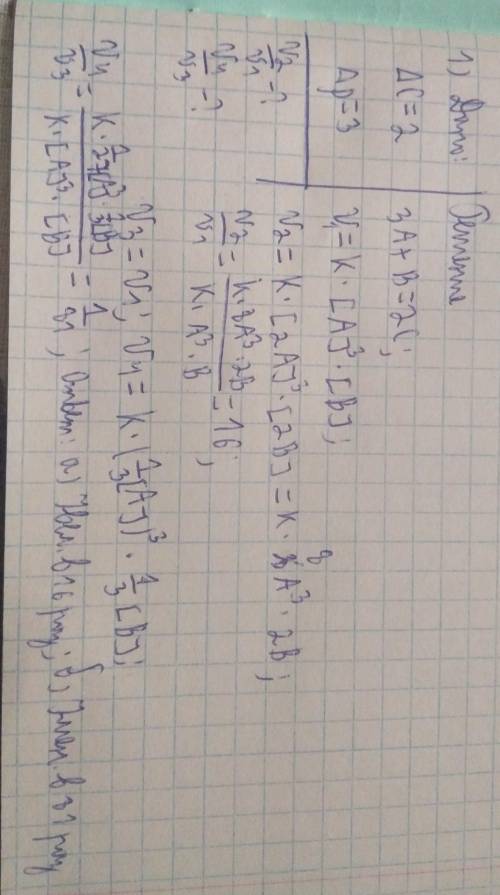 1) Дано:
ΔC=2
Δp=3
V2/V1-?
V4/V3-?
Решение
3A+B=2C;
V1=K·[A]³·[B];
V2=K·[2A]³·[2B]=K·8A³·2B;
V2/V1=K·8A³·2B/K·A³·B=16;
V3=V1; V4=K·(1/3[A])³·1/3[B];
V4/V3=K·1/27[A]³·1/3[B]/K·[A]³·[B]=1/81; Ответ: а) Увел. в 16 раз; б) Умен. в 81 раз